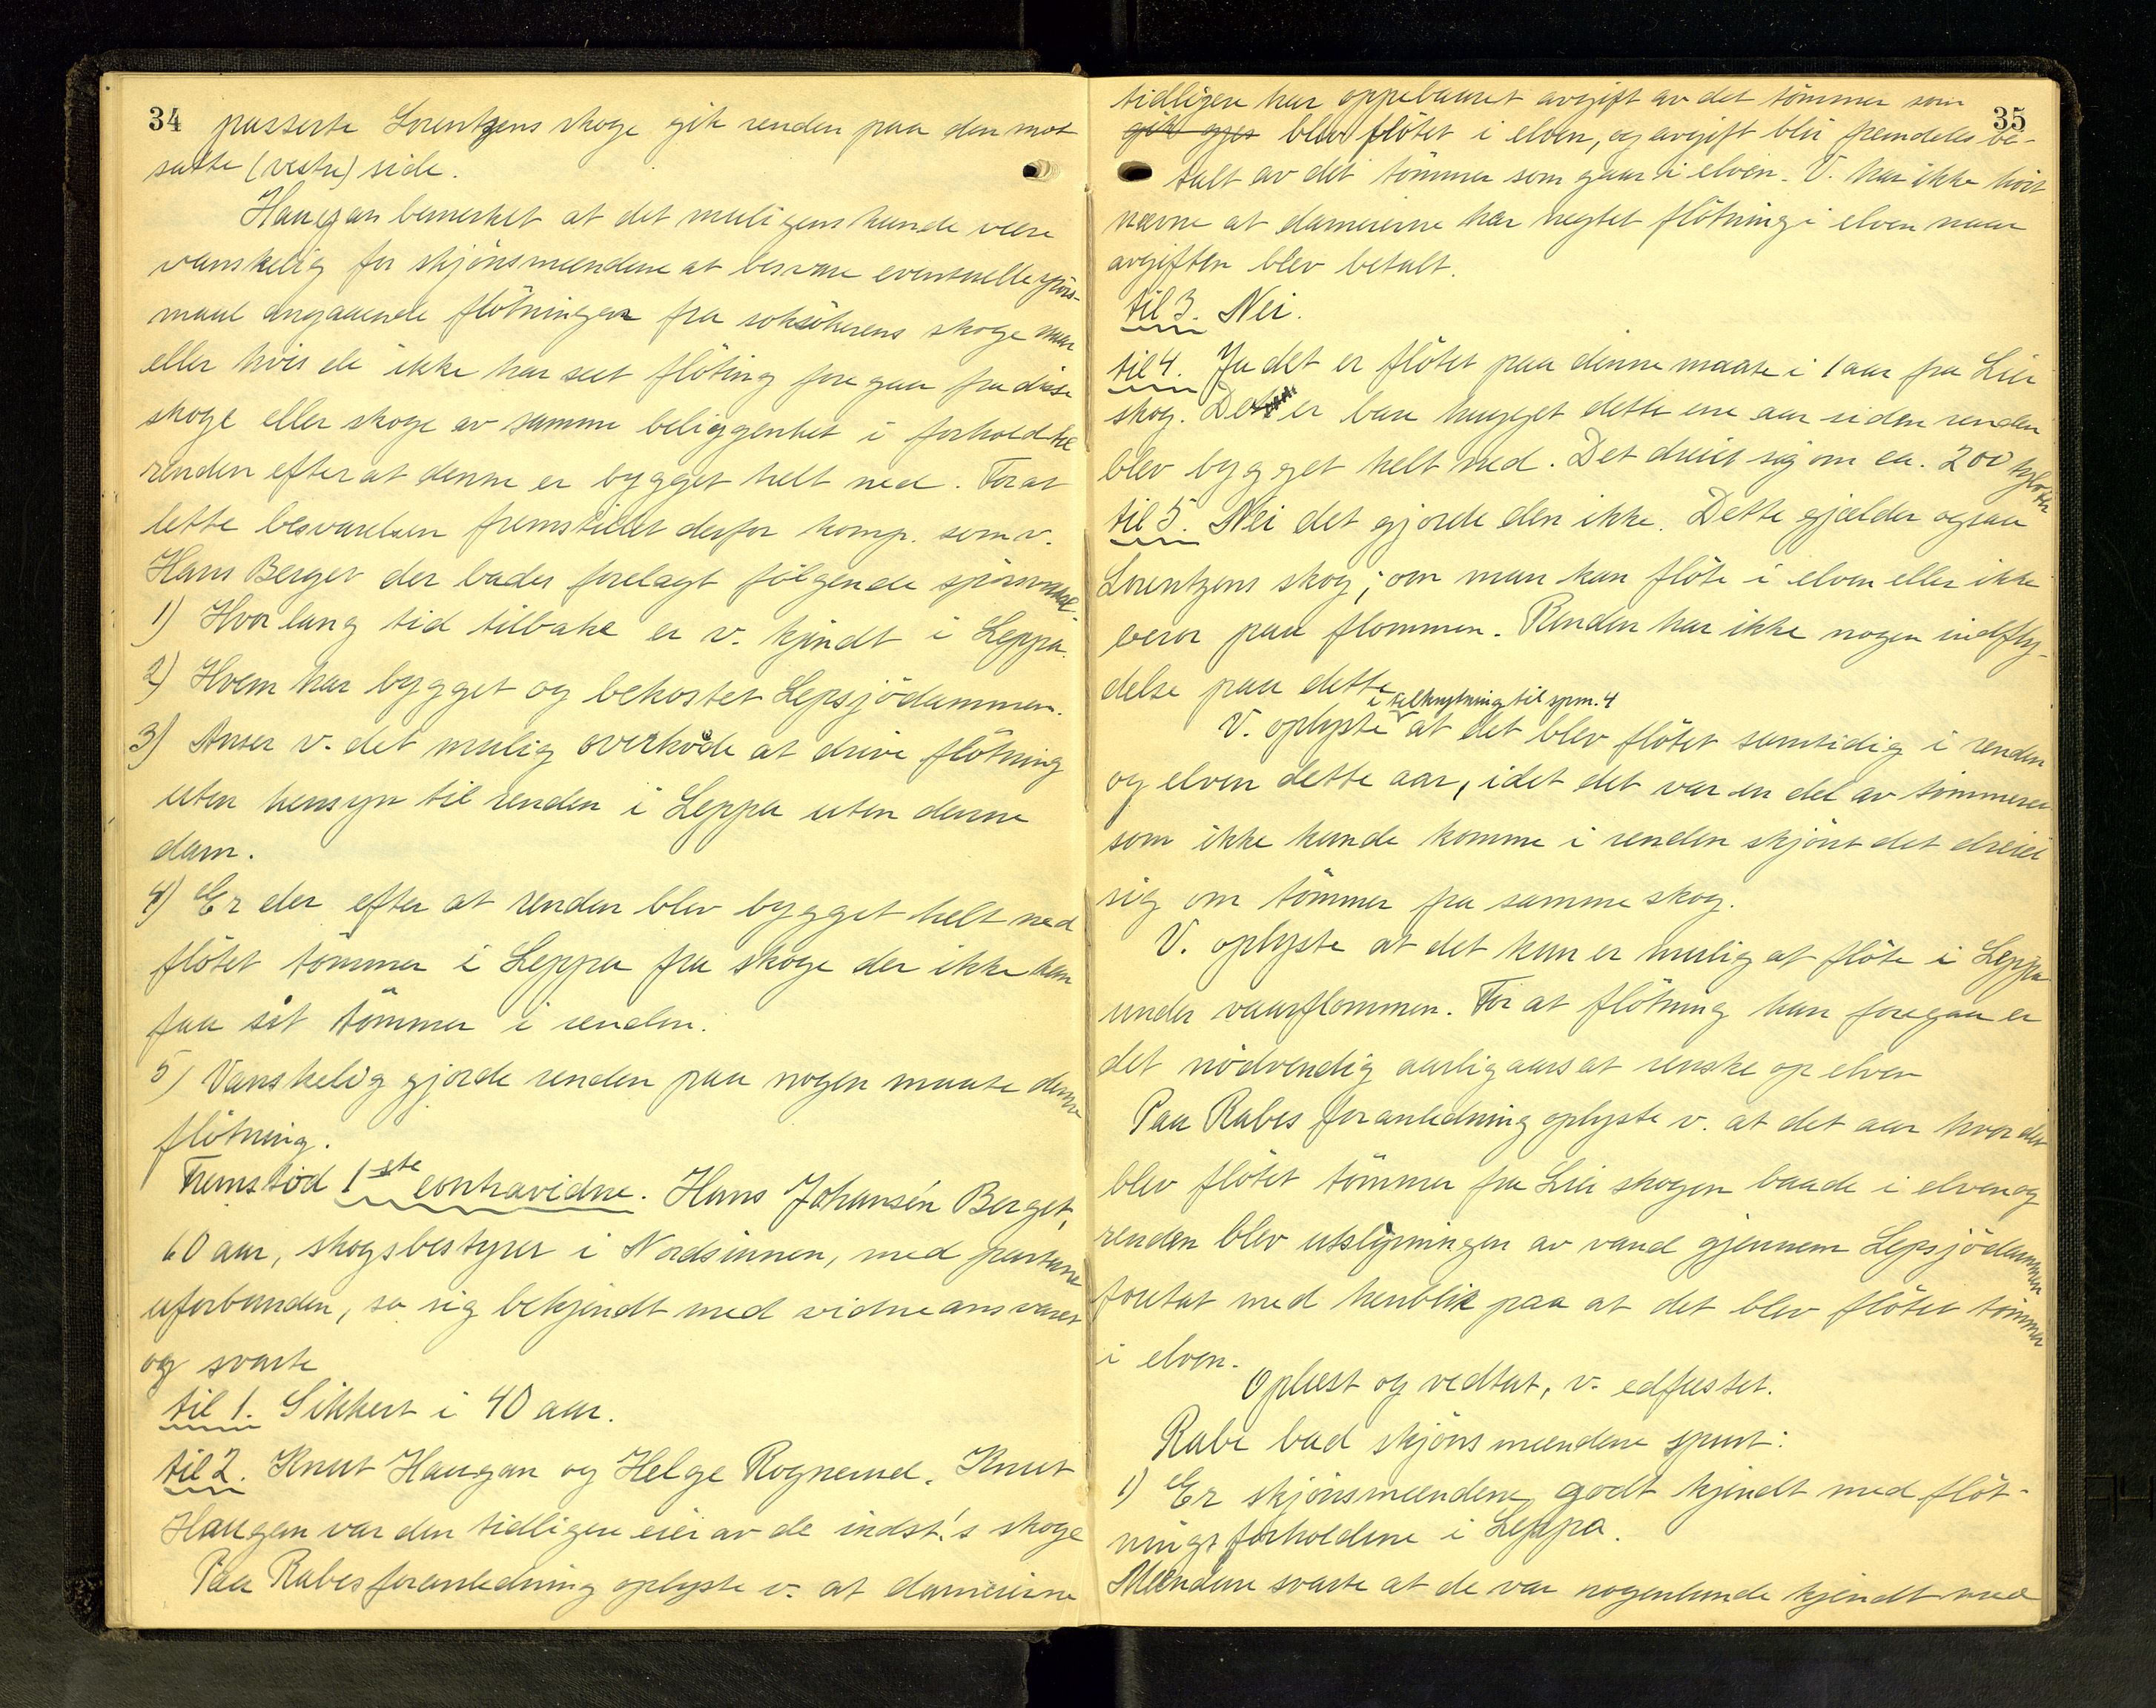 34
passerte Lorentzens skoge gik renden paa den mot
satte (vestre) side.
Haugan bemerket at det muligens kunde være
vanskelig for skjönsmændene at besvare eventuelle spörs-
maal angaaende flötningen fra saksökerens skoge naar
eller hvis de ikke har set flöting foregaa fra disse
skoge eller skoge av samme beliggenhet i forhold til
renden efter at denne er bygget helt ned. For at
lette besvarelsen fremstillet derfor komp. som v.
Hans Berget der bades forelagt fölgende spörsmaal.
1) Hvor lang tid tilbake er v. kjendt i Leppa.
2) Hvem har bygget og bekostet Lepsjödammen.
3) Anser v. det mulig overhode at drive flötning
uten hensyn til renden i Leppa uten denne
dam.
4) Er der efter at renden blev bygget helt ned
flötet tömmer i Leppa fra skoge der ikke kan
faa sit tömmer i renden.
5) Vanskelig gjorde renden paa nogen maate denne
flötning.
Fremstod 1ste contravidne. Hans Johansen Berget,
60 aar, skogsbestyrer i Nordsinnen, med partene
uforbunden, sa sig bekjendt med vidneansvaret
og svarte
til 1. Sikkert i 40 aar.
til 2. Knut Haugan og Helge Rognerud. Knut
Haugan var den tidligere eier av de indst.'s skoge
Paa Rabes foranledning oplyste v. at dameierne
35
tidligere har oppebaaret avgift av det tömmer som
gik gjes blev flötet i elven, og avgift blir fremdeles be-
talt av det tömmer som gaar i elven. V. har ikke hört
nævne at dameierne har negtet flötning i elven naar
avgiften blev betalt.
til 3. Nei.
til 4. Ja det er flötet paa denne maate i 1 aar fra Lier
skog. Det er bare hugget dette ene aar siden renden
blev bygget helt ned. Det dreiet sig om ca. 200 tylvter
til 5. Nei det gjorde den ikke. Dette gjælder ogsaa
Lorentzens skog; om man kan flöte i elven eller ikke
beror paa flommen. Renden har ikke nogen indfly-
delse paa dette.
i tilknytning til spm. 4
V. oplyste at det blev flötet samtidig i renden
og elven dette aar, idet det var en del av tömmeret
som ikke kunde komme i renden skjönt det dreiet
sig om tömmer fra samme skog.
V. oplyste at det kun er mulig at flöte i Leppa
under vaarflommen. For at flötning kan foregaa er
det nödvendig aarligaars at renske op elven
Paa Rabes foranledning oplyste v. at det aar hvor der
blev flötet tömmer fra Lier skogen baade i elven og
renden blev utslipningen av vand gjennem Lepsjödammen
foretat med henblik paa at det blev flötet tömmer
i elven.
Oplæst og vedtat, v. edfæstet.
Rabe bad skjönsmændene spurt:
1) Er skjönsmændene godt kjendt med flöt-
ningsforholdene i Leppa.
Mændene svarte at de var nogenlunde kjendt med